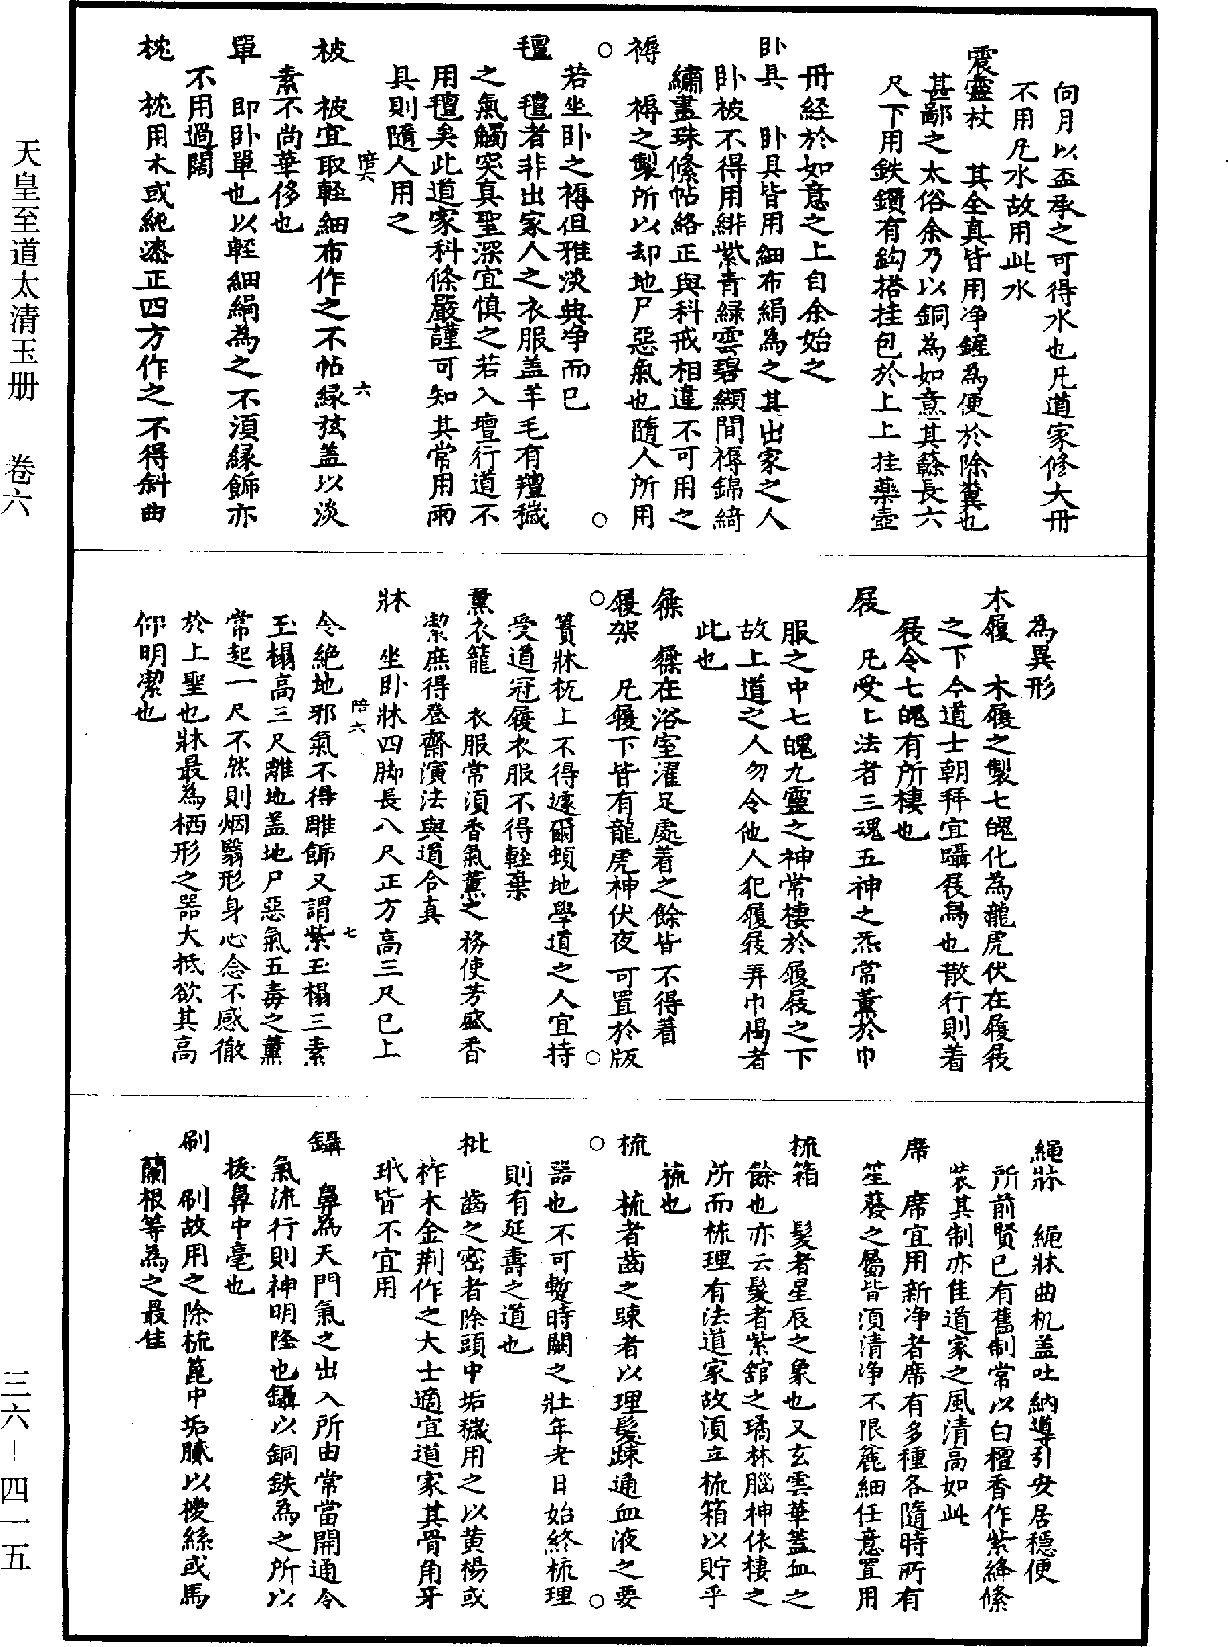 天皇至道太清玉册　卷六
三六－四一五
向月以盃承之可得水也凡道家修大册
不用凡水故用此水
震靈杖　其全真皆用净鏟為便於除糞也
甚鄙之太俗余乃以銅為如意其蘇長六
尺下用鉄鑽有鈎搭挂包於上上挂藥壺
冊経於如意之上自余始之
卧具　卧具皆用細布絹為之其出家之人
卧被不得用緋紫青緑雲碧纈間褥錦綺
繡畫珠絛帖絡正與科戒相違不可用之
褥　褥之製所以却地尸惡氣也隨人所用
若坐卧之褥但雅淡典净而已
氊　氊者非出家人之衣服盖羊毛有羶穢
之氣觸突真聖深宜慎之若入壇行道不
用氊矣此道家科條嚴謹可知其常用雨
具則隨人用之
陪六　六
被　被宜取輕細布作之不帖緑弦盖以淡
素不尚華侈也
單　即卧單也以輕細絹為之不須縁飾亦
不用過闊
枕　枕用木或純漆正四方作之不得斜曲
為異形
木履　木履之製七魄化為龍虎伏在履屐
之下今道士朝拜宜躡屐舄也散行則着
屐令七魄有所棲也
屐　凡受上法者三魂五神之炁常薰於巾
服之中七魄九靈之神常棲於履屐之下
故上道之人勿令他人犯履屐弄巾褐者
此也
屧　屧在浴室濯足處着之餘皆不得着
履架　凡履下皆有龍虎神伏夜可置於版
簀牀杌上不得遽爾頓地學道之人宜持
受道冠履衣服不得輕棄
薰衣籠　衣服常須香氣薰之務使芳盛香
潔庶得登齋演法與道合真
牀　坐卧牀四脚長八尺正方高三尺已上
陪六　七
令絶地邪氣不得雕飾又謂紫玉榻三素
玉榻高三尺離地盖地尸惡氣五毒之薰
常起一尺不然則烟翳形身心念不感徹
於上聖也牀最為栖形之器大抵欲其高
仰明潔也
繩牀　繩牀曲杌盖吐納導引安居穩便
所前賢已有舊制常以白檀香作紫絳絛
装其制亦佳道家之風清高如此
席　席宜用新净者席有多種各隨時所有
笙蕟之屬皆須清净不限麄細任意置用
梳箱　髮者星辰之象也又玄雲華蓋血之
餘也亦云髮者紫舘之璚林腦神依棲之
所而梳理有法道家故須立梳箱以貯乎
梳也
梳　梳者齒之踈者以理髮踈通血液之要
器也不可暫時闕之壯年老日始終梳理
則有延壽之道也
枇　齒之密者除頭中垢穢用之以黄楊或
柞木金荆作之大士適宜道家其骨角牙
玳皆不宜用
鑷　鼻為天門氣之出入所由常當開通令
氣流行則神明隆也鑷以銅鉄為之所以
拔鼻中毫也
刷　刷故用之除梳篦中垢膩以椶絲或馬
蘭根等為之最佳